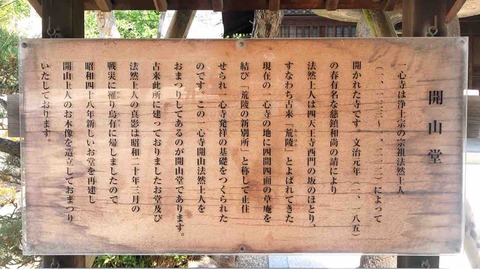 開山堂
一心寺は浄土宗の宗祖法然上人
(一、一三三〜一、二一二)によって
開かれた寺です。文治元年(一、一八五)
の春有名な慈鎮和尚の請により
法然上人は四天王寺西門の坂のほとり、
すなわち古来「荒陵」とよばれてきた
現在の一心寺の地に四間四面の草庵を
結び「荒陵の新別所」と称して止住
せられ一心寺発祥の基礎をつくられた
のです。この一心寺開山法然上人を
おまつりしてあるのが開山堂であります。
古来此所に建っておりましたお堂及び
法然上人の真影は昭和二十年三月の
戦災に罹り烏有に帰しましたので
昭和四十八年新しいお堂を再建し
開山上人のお木像を造立しておまつり
いたしております。